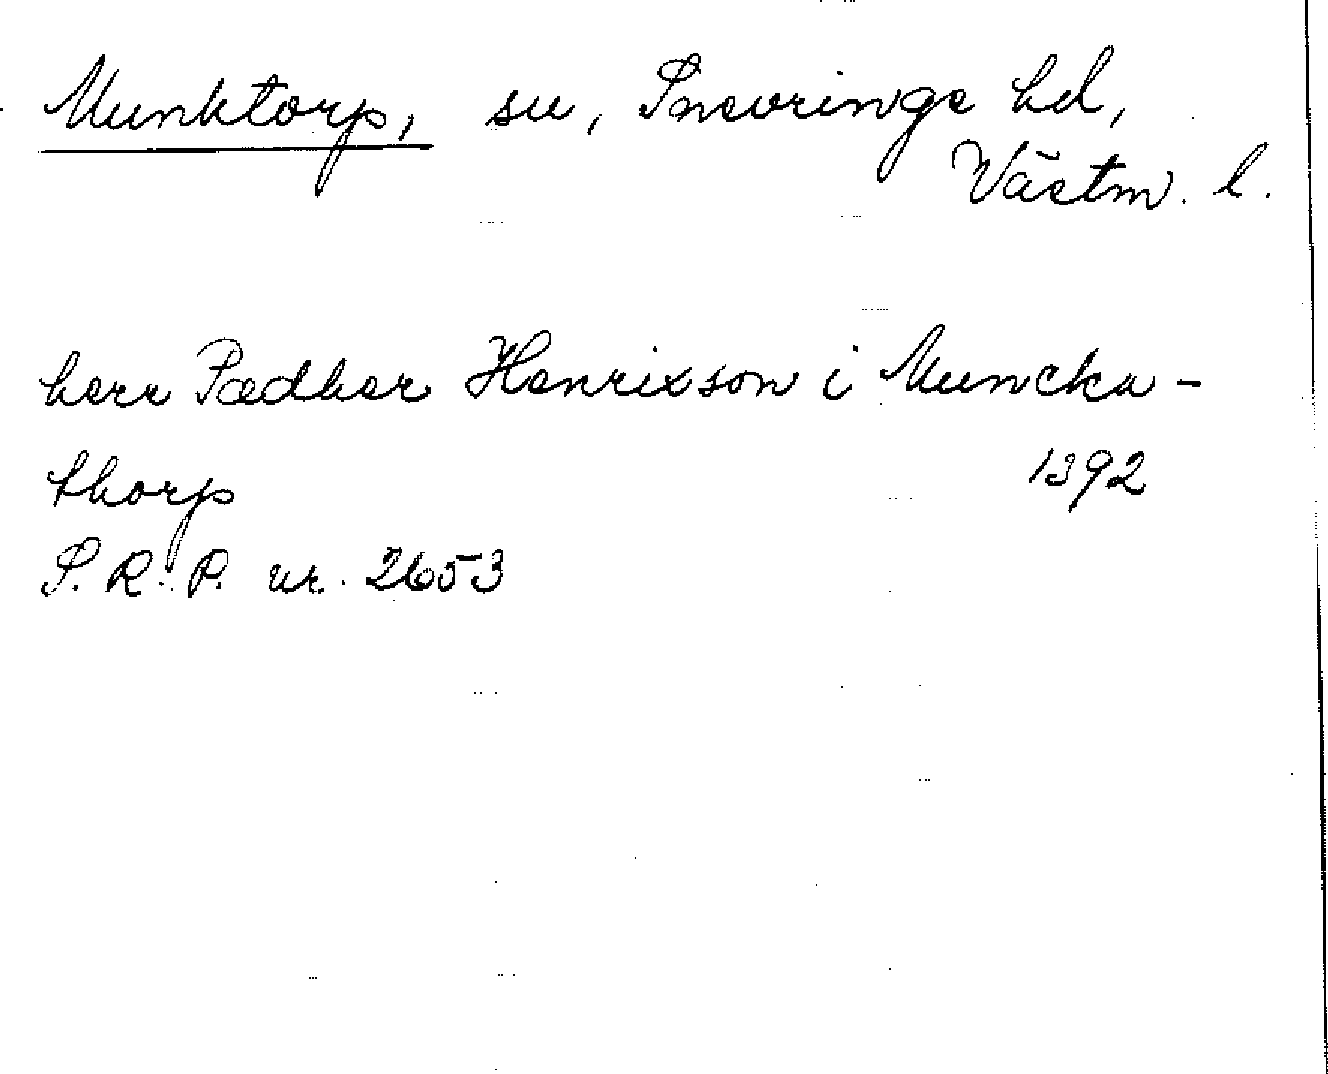 Munktorp, sn, Snevringe hd,
Västm. l.
herr Pædher Henrixson i Muncka-
thorp 1392
S. R. P. nr. 2653